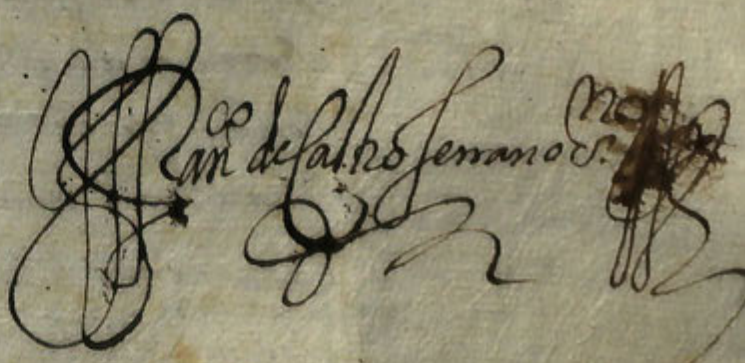 Franco de Castro Serrano Sno